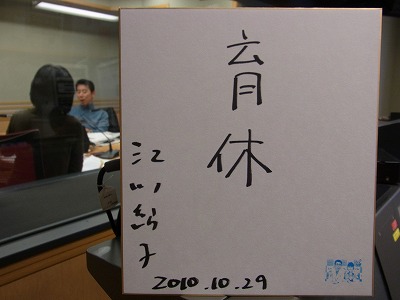 育休
江川紹子
2010.10.29